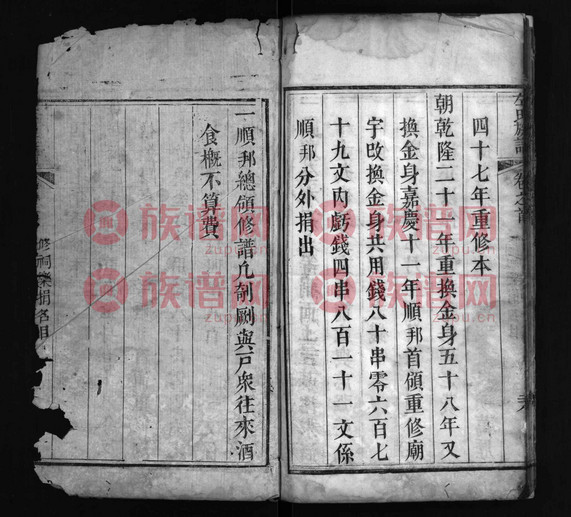 族譜 卷之首
四十七年重修本
朝乾隆二十一年重換金身五十八年又
換金身嘉慶十一年順邦首領重修廟
宇改換金身共用錢八十串零六百七
十九文內虧錢四串八百一十一文係
順邦分外捐出
一順邦總領修譜凡剞劂與戶衆往來酒
食概不算費
修祠樂捐名目
族谱网
zupu.cn
族谱网
zupu.cn
族谱网
zupu.cn
族谱网
zupu.cn